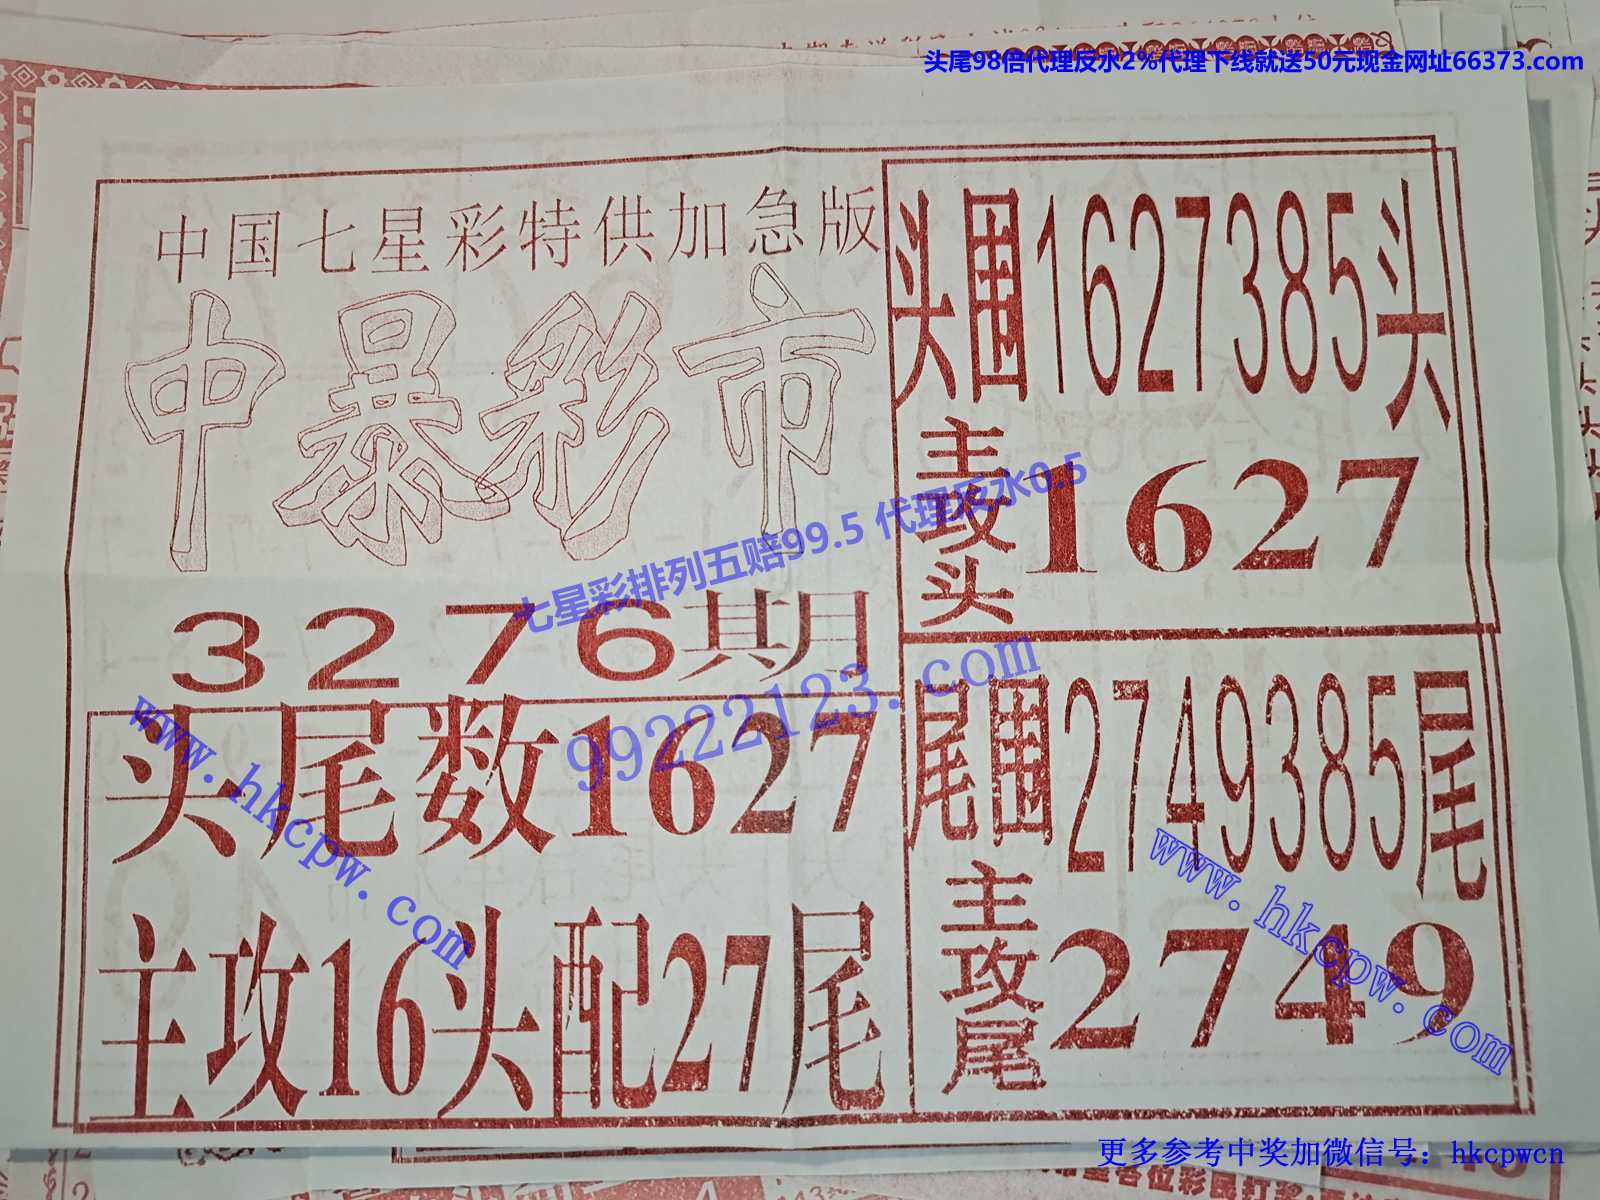 头尾98倍代理反水2%代理下线就送50元现金网址66373.com
中国七星彩特供加急版
中暴彩市
3276期
头尾数1627
主攻16头配27尾
头围1627385头
主攻头1627
尾围2749385尾
主攻尾2749
七星彩排列五赔99.5 代理反水0.5
99222123.com
www.hkcpw.com
www.hkcpw.com
更多参考中奖加微信号：hkcpwcn